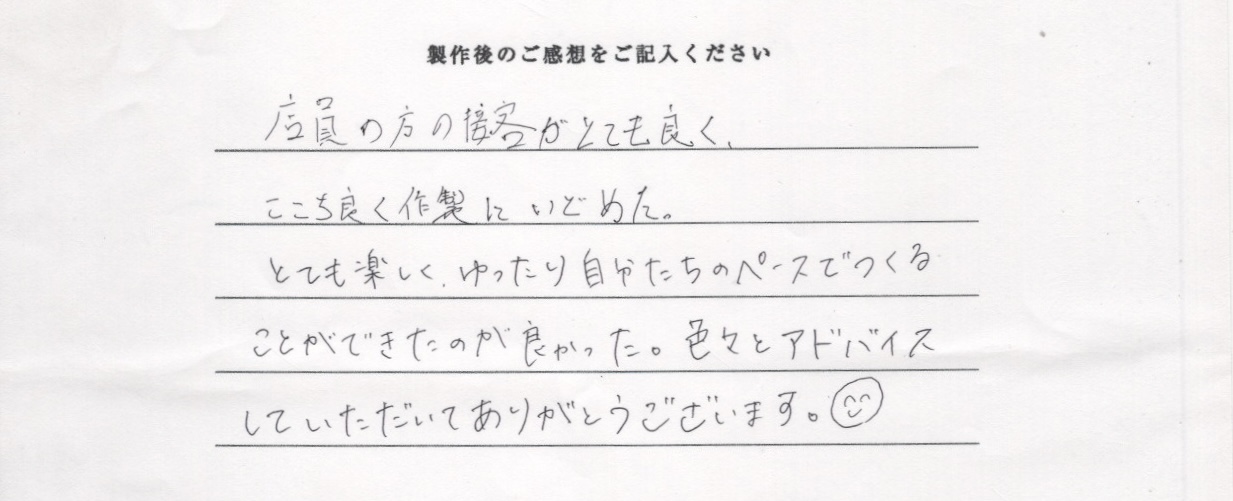 製作後のご感想をご記入ください
店員の方の接客がとても良く、
ここち良く作製にいどめた。
とても楽しく、ゆったり自分たちのペースでつくる
ことができたのが良かった。色々とアドバイス
していただいてありがとうございます。